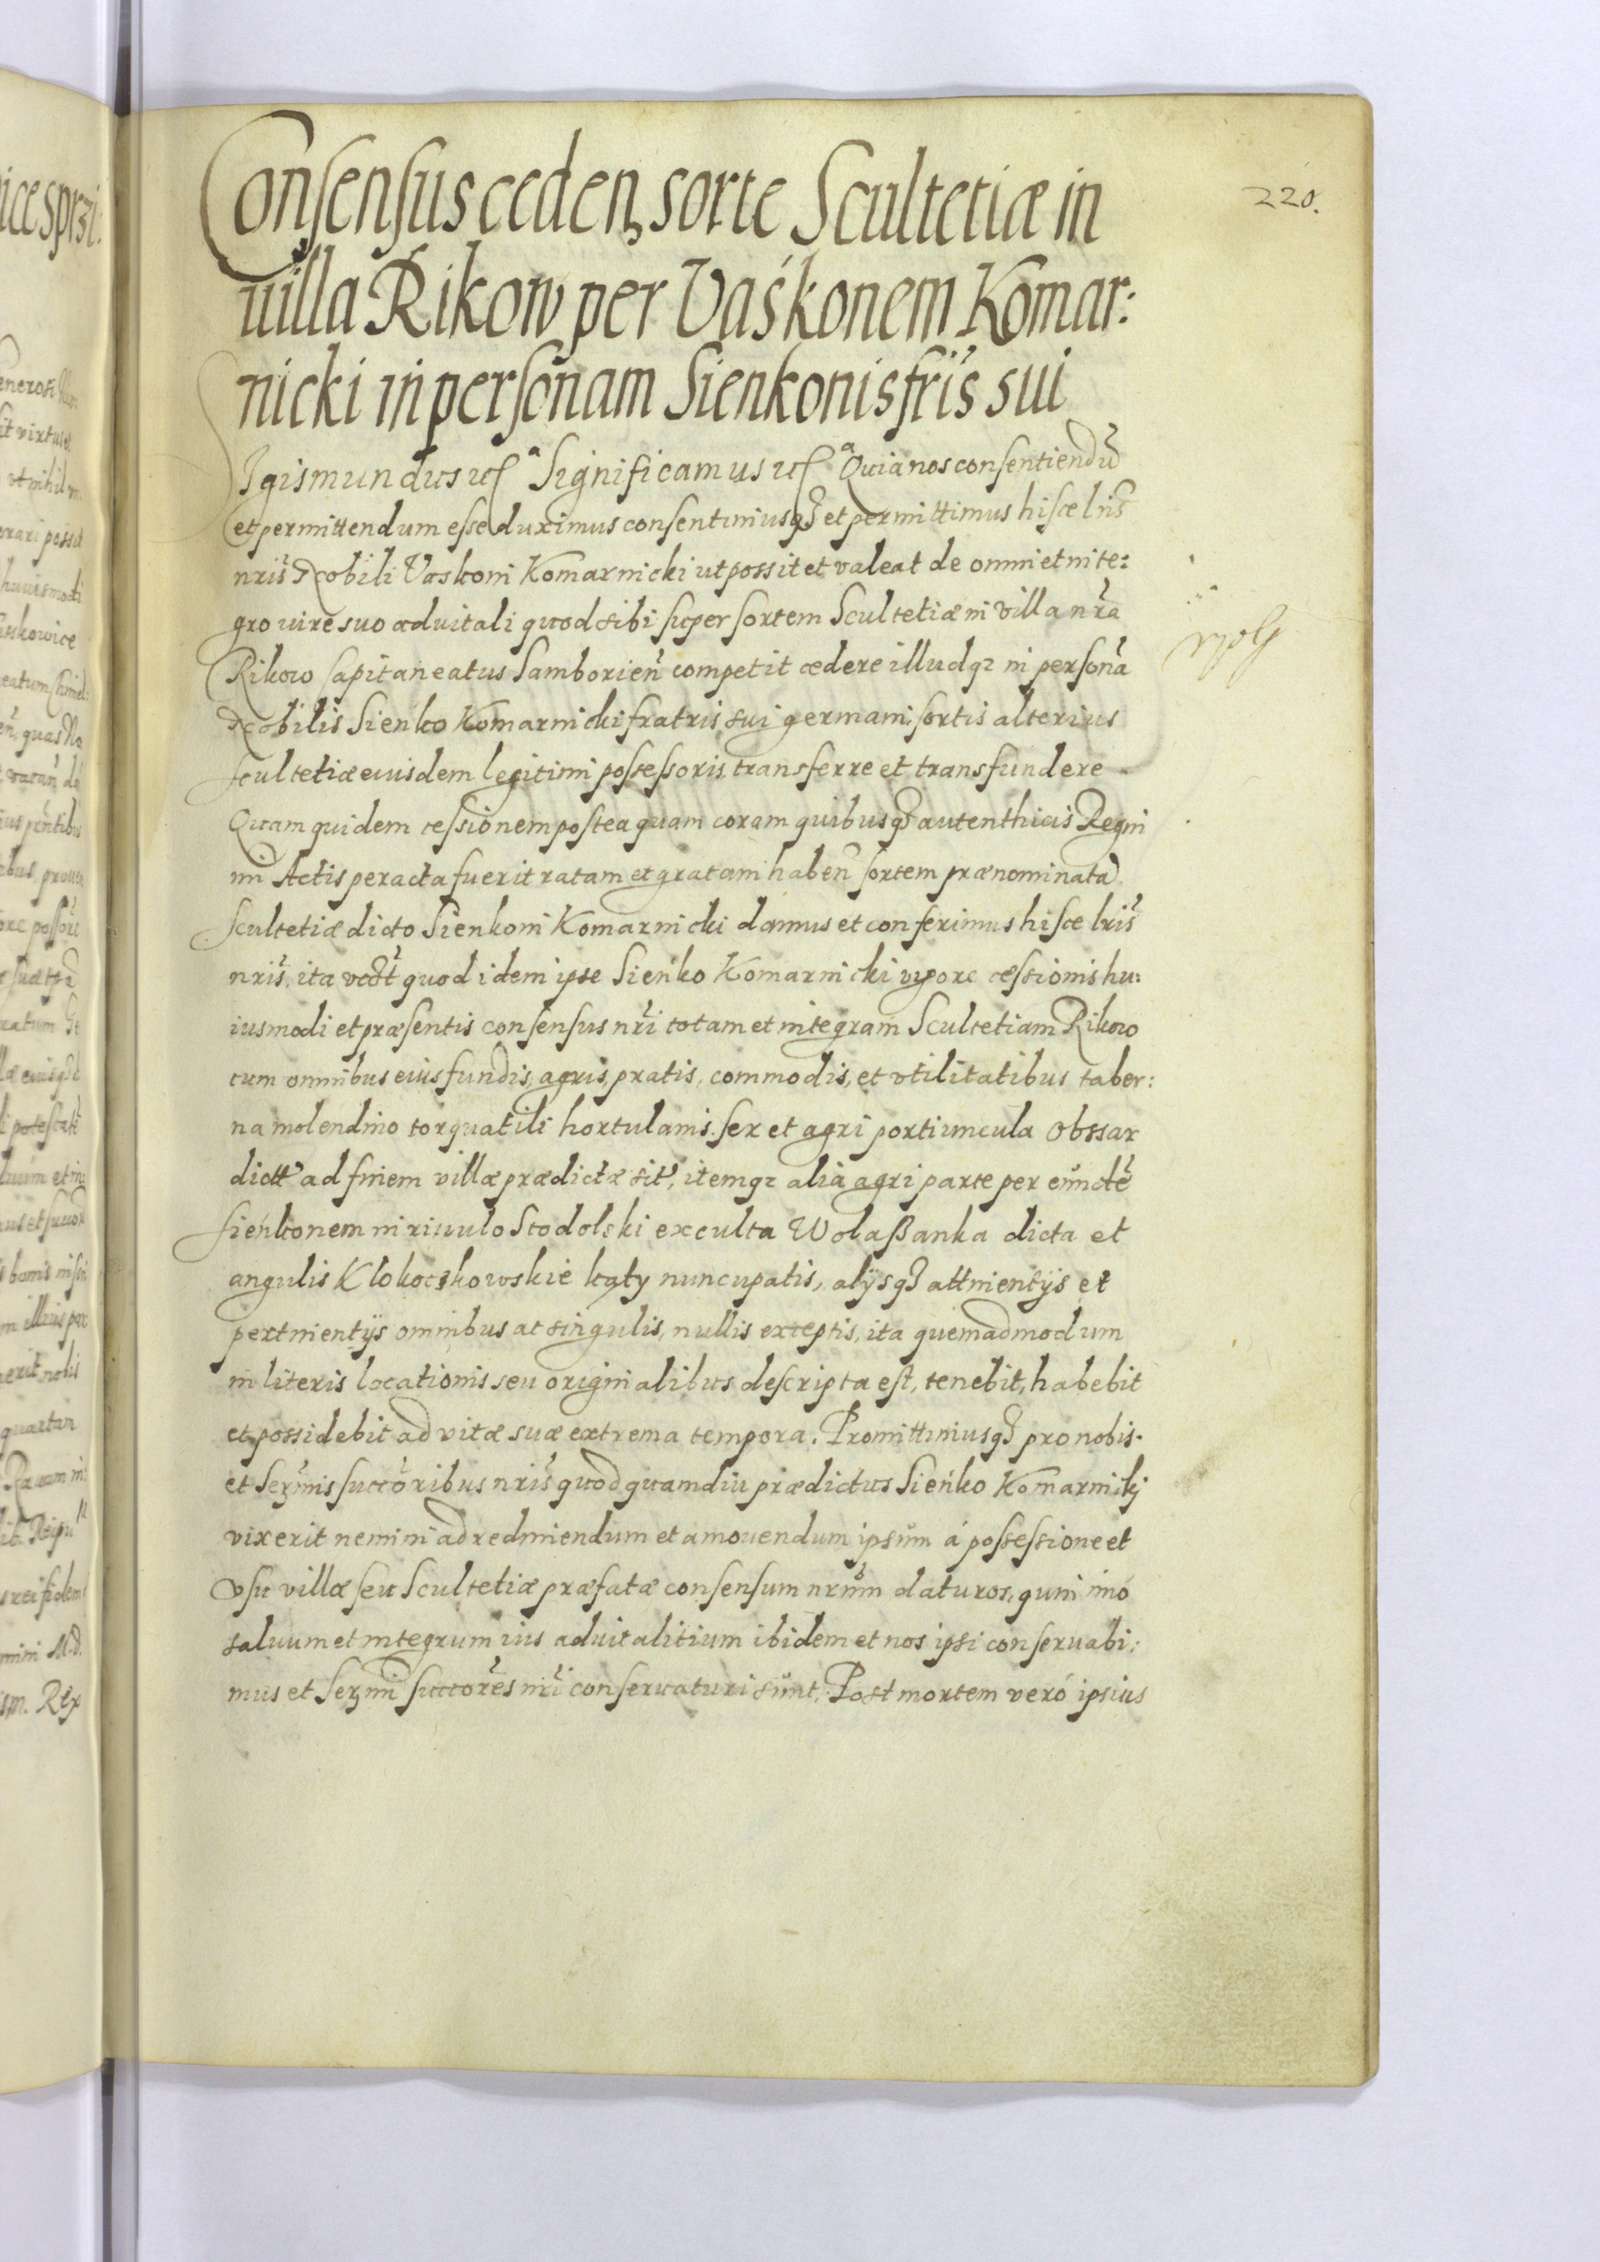 220.
Consensus ceden sorte Scultetiæ in
uilla Rikow per Vaśkonem Komar:
nicki in personam Sienkonis fris sui
Sigismundus etc Significamus etc Quia nos consentiendū
et permittendum esse duximus consentimusq3 et permittimus hisce lris
nris Nobili Vaskoni Komarnicki ut possit et valeat de omni et inte:
gro iure suo advitali quod sibi super sortem Scultetiæ in villa nra
Rikow Capitaneatus Samborien competit cedere illudq3 in persona
Nobilis Sieńko Komarnicki fratris sui germani sortis alterius
scultetiæ eiusdem legitimi possessoris transferre et transfundere
Quam quidem cessionem postea quam coram quibusq3 autenthicis Regni
nri Actis peracta fuerit ratam et gratam haben sortem prænominatā
Scultetiæ dicto Sienkoni Komarnicki damus et conferimus hisce lris
nris, ita quod idem ipse Sieńko Komarnicki vigore cessionis hu:
iusmodi et præsentis consensus nri totam et integram Scultetiam Rikow
cum omnibus eius fundis, agris, pratis, commodis, et vtilitatibus taber:
na molendino torquatili hortulanis sex et agri portiuncula Obssar
dict ad finem villæ prædictæ sit, itemq3 alia agri parte per eundē
sieńkonem in riuulo Stodolski exculta Wolaßanka dicta et
angulis Klokoczkowskie kąty nuncupatis, alijsq3 attinentijs et
pertinentijs omnibus ac singulis, nullis exceptis, ita quemadmodum
in literis locationis seu originalibus descripta est, tenebit, habebit
et possidebit ad vitæ suæ extrema tempora. Promittimusq3 pro nobis
et Sermis succoribus nris quod quamdiu prædictus Sieńko Komarnicki
vixerit nemini ad redimendum et amouendum ipsum á possessione et
vsu villæ seu Scultetiæ præfatæ consensum nrum daturos, quin imó
saluum et integrum ius aduitalitium ibidem et nos ipsi conseruabi:
mus et Sermi succores nri conseruaturi sunt. Post mortem veró ipsius